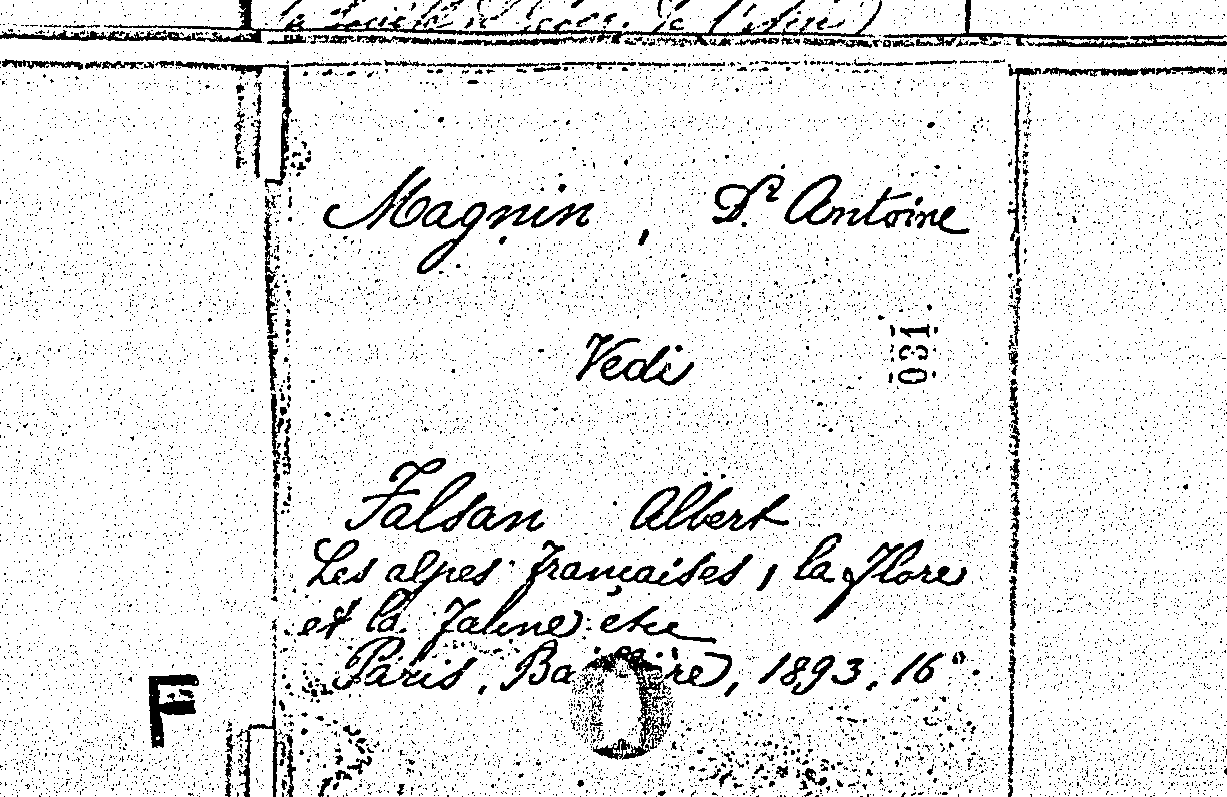 Magnin, Dr Antoine
031
Vedi
Falsan Albert
Les alpes françaises, la flore
et la faune etc
Paris, Baillière, 1893. 16°.
F